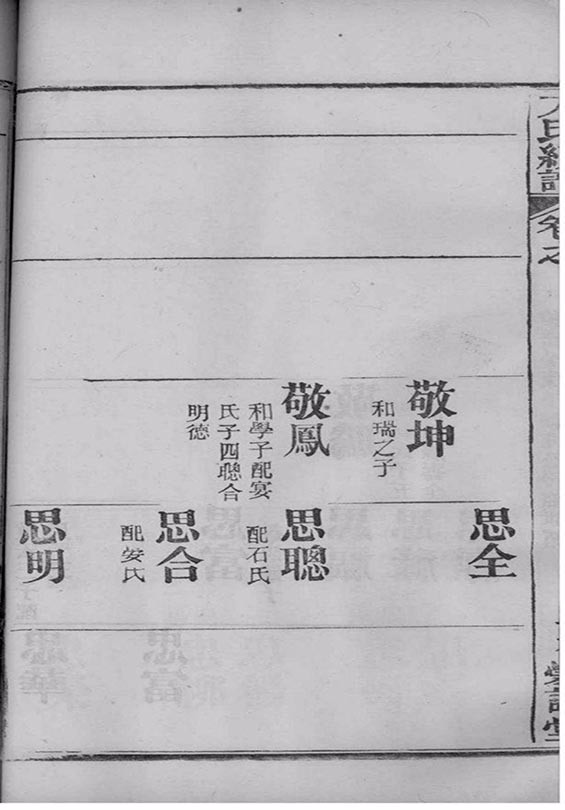 卷之
敬坤
和瑞之子
敬鳳
和學子配宴
氏子四聰合
明德
思全
思聰
配石氏
思合
配安氏
思明